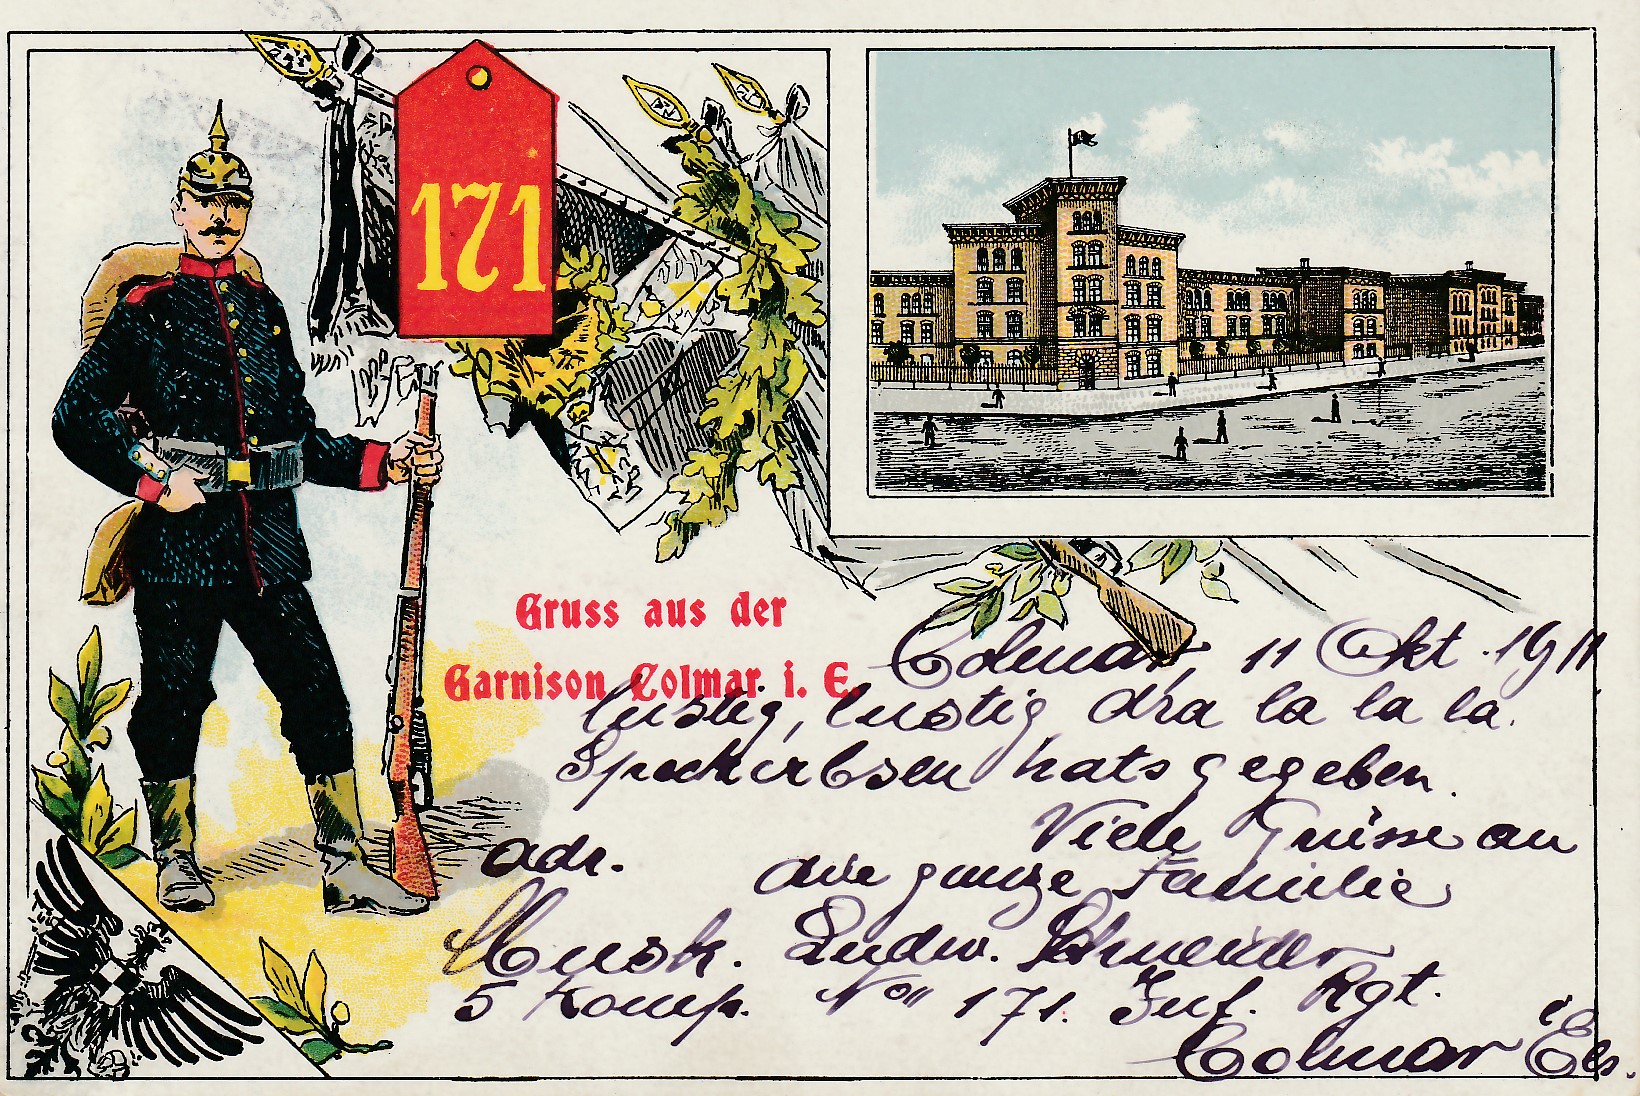 171
Gruss aus der
Garnison Colmar i. E.
Colmar, 11 Okt. 1911
lustig, lustig dra la la la.
Speckerbsen hats gegeben.
Viele Grüsse an
die ganze Familie
adr.
Musk. Ludw. Schneider
5 Komp. No 171. Inf. Rgt.
Colmar i. Els.